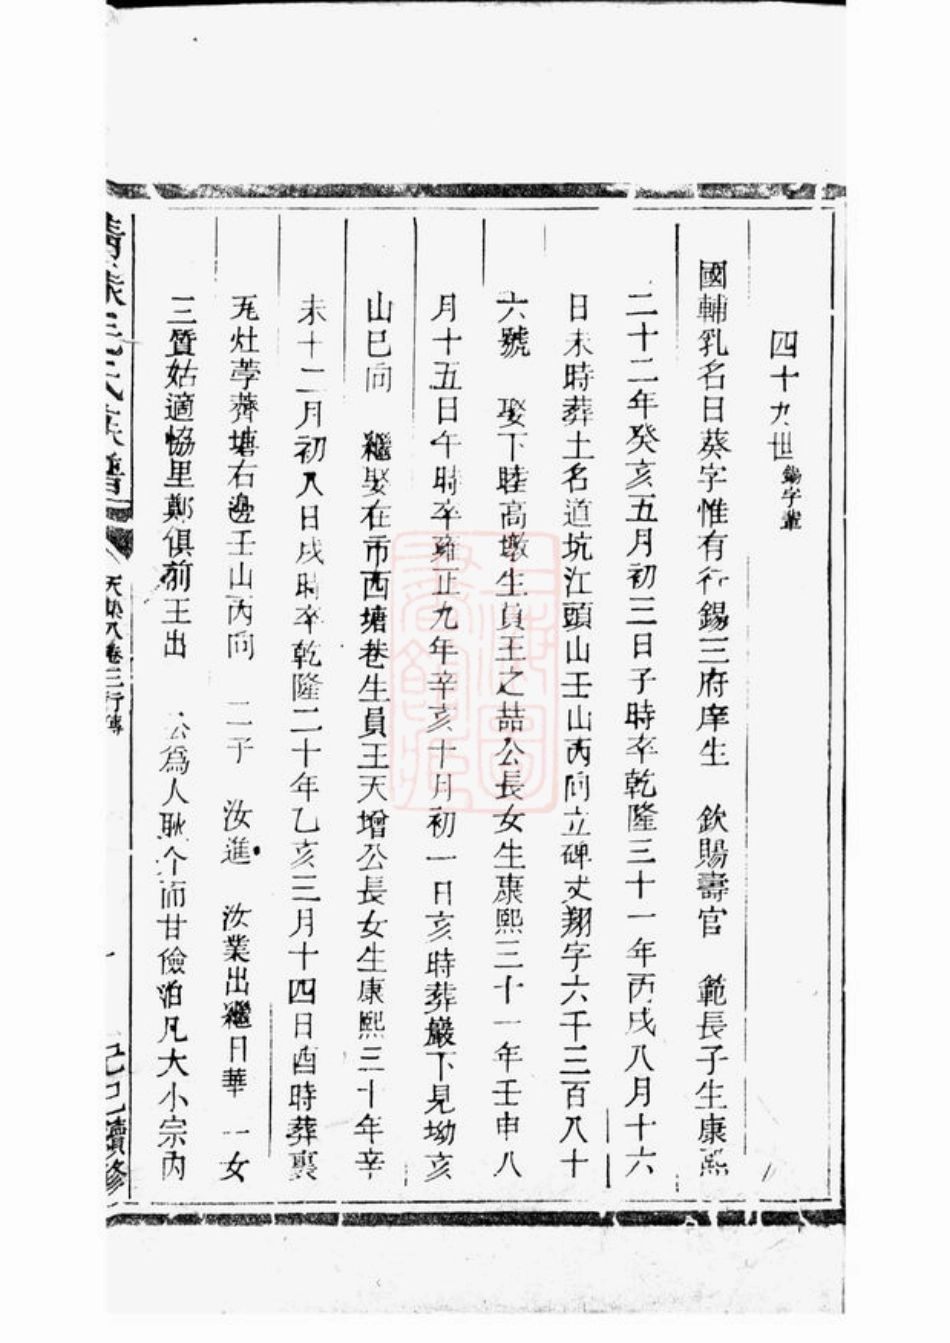 四十九世錫字輩
國輔乳名日葵字惟有行錫三府庠生　欽賜壽官　範長子生康熙
二十二年癸亥五月初三日子時卒乾隆三十一年丙戌八月十六
日未時葬土名道坑江頭山壬山丙向立碑丈翔字六千三百八十
六號　娶下睦高墩生員王之喆公長女生康熙三十一年壬申八
月十五日午時卒雍正九年辛亥十月初一日亥時葬巖下見坳亥
山巳向　繼娶在市西塘巷生員王天增公長女生康熙三十年辛
未十二月初八日戌時卒乾隆二十年乙亥三月十四日酉時葬裏
灶葶薺塘右邊壬山丙向　二子　汝進　汝業出繼日華　一女
三質姑適協里鄭俱前王出　公為人耿介而甘儉泊凡大小宗內
毛氏族譜　天集八卷三行傳　己巳續修